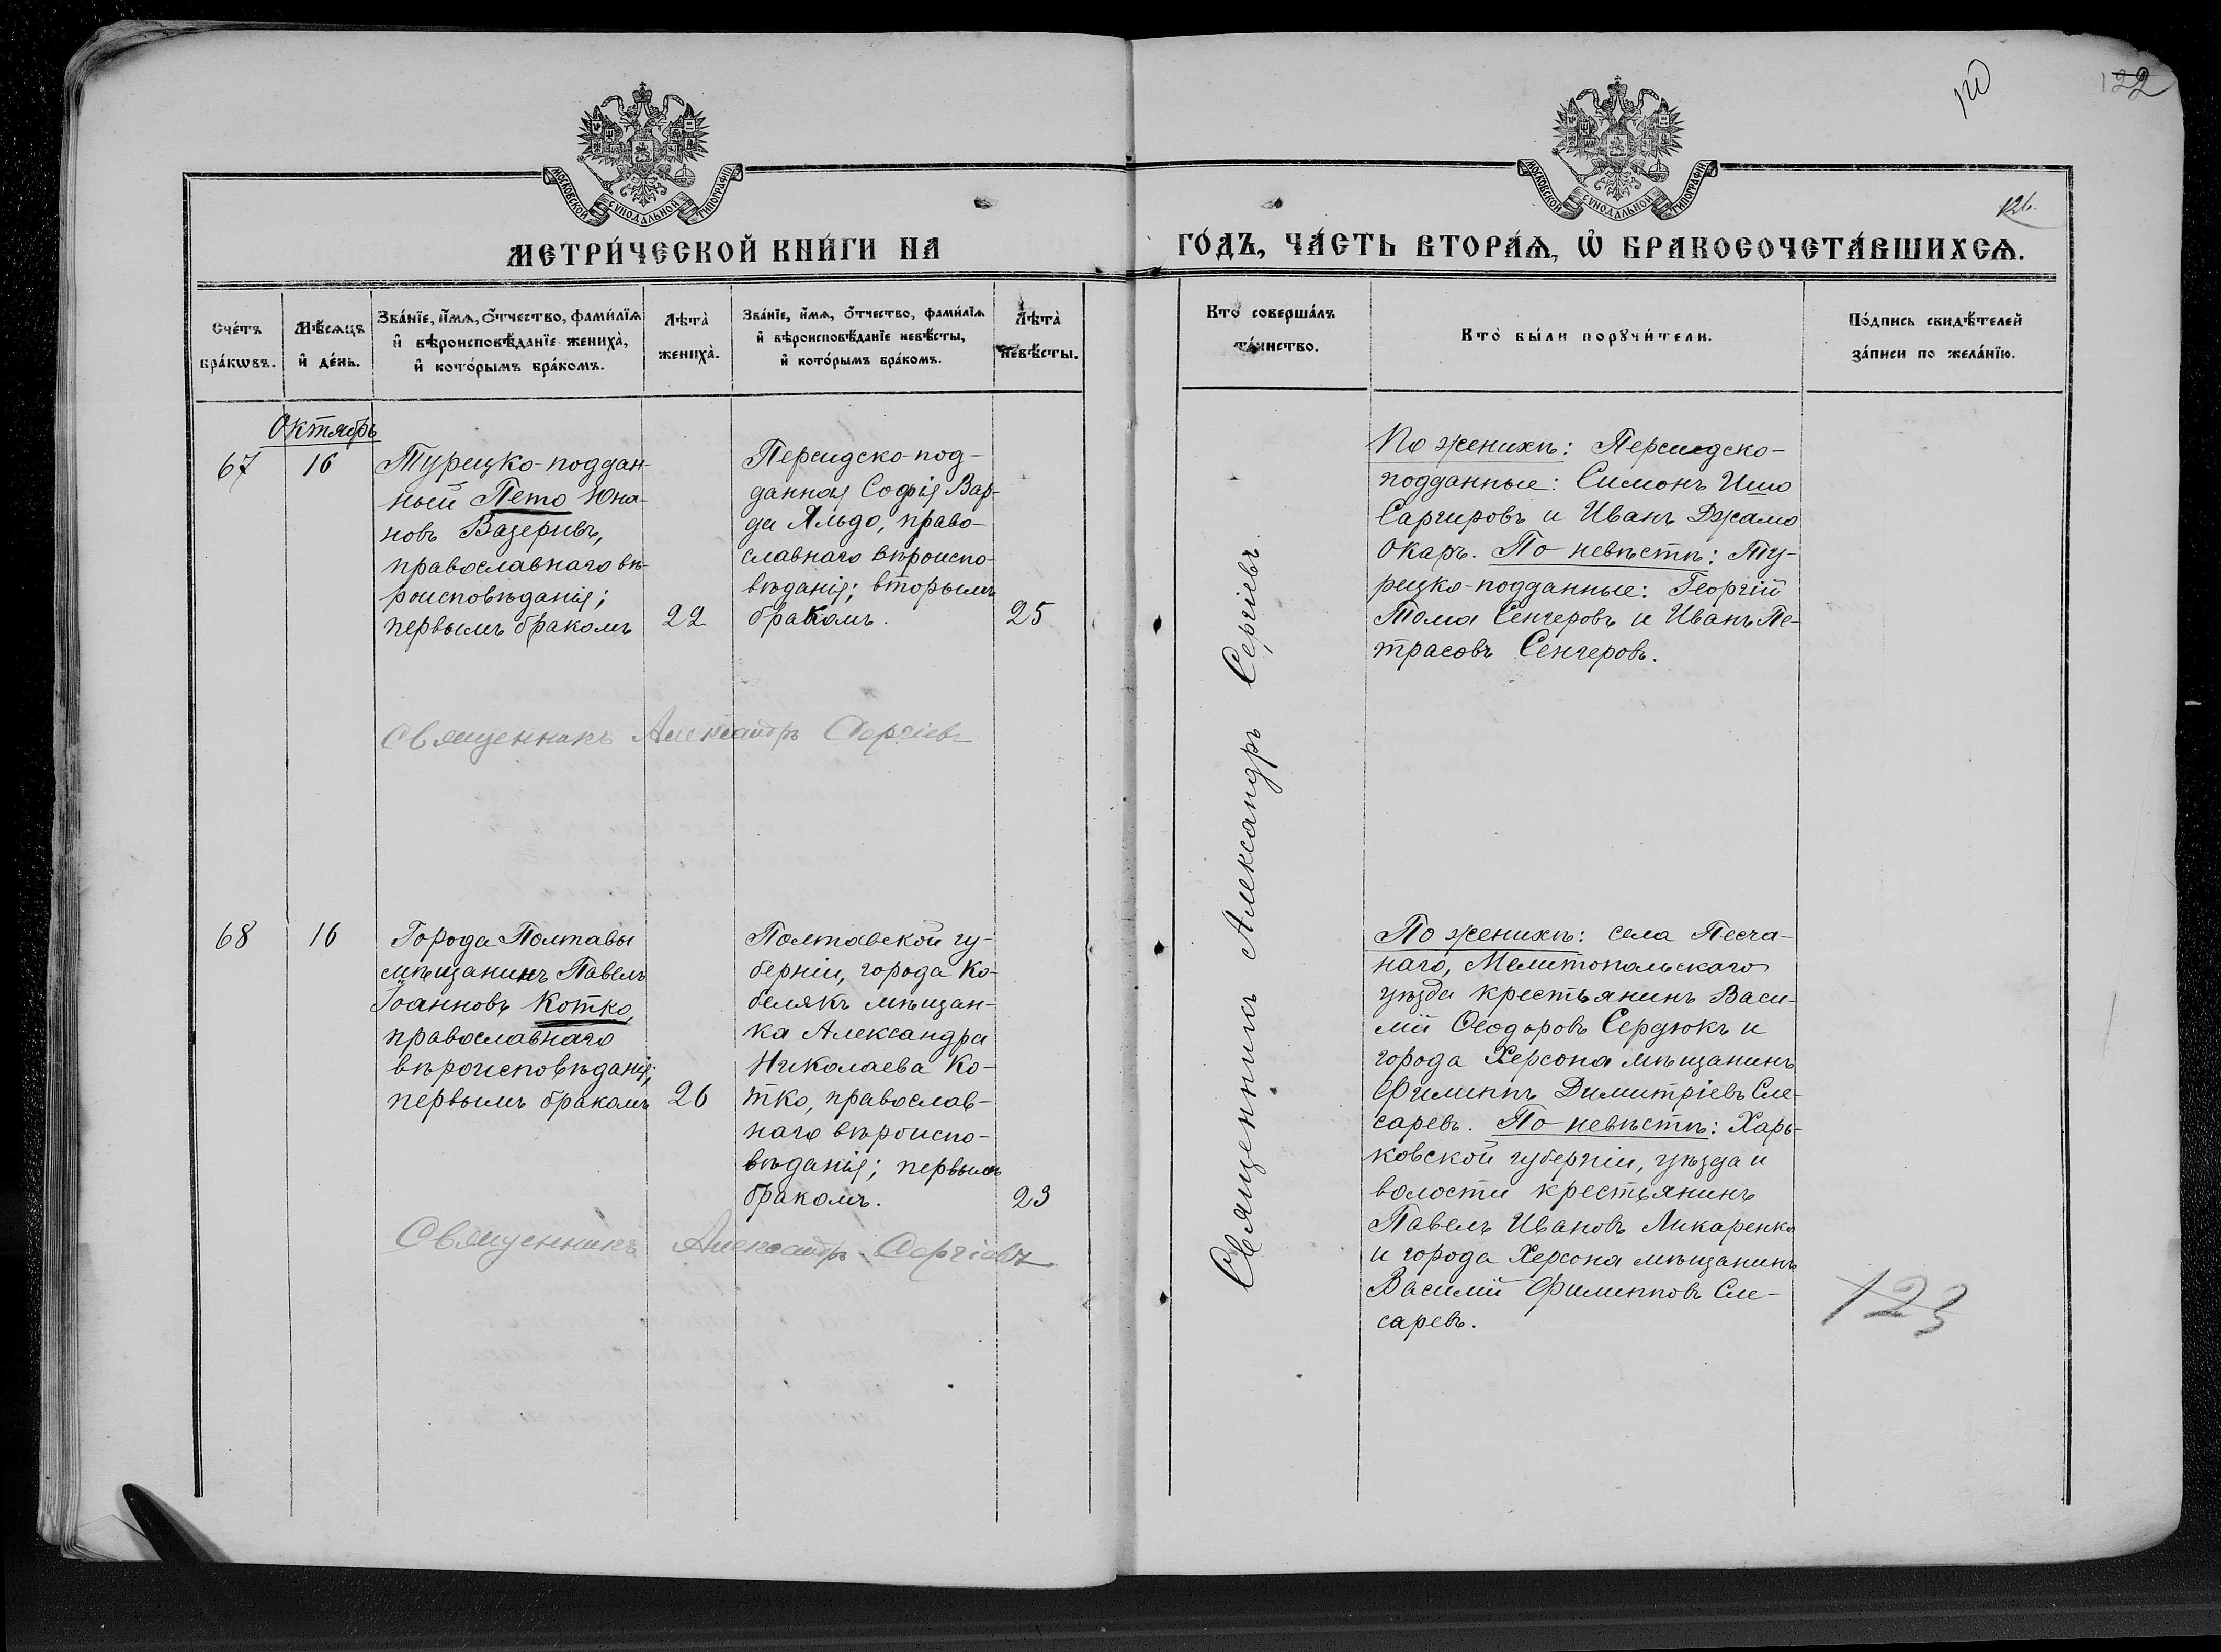 120
122
МОСКОВСКОЙ СѴНОДАЛЬНОЙ ТИПОГРАФІИ
МОСКОВСКОЙ СѴНОДАЛЬНОЙ ТИПОГРАФІИ
126.
МЕТРИ́ЧЕСКОЙ КНИ́ГИ НА
ГО́ДЪ, ЧА́СТЬ ВТОРА́Ѧ, Ѽ БРАКОСОЧЕТА́ВШИХСѦ.
Сче́тъ
бра́кѡвъ.
Мѣ́сяцъ
и҆ де́нь.
Зва́нїе, и҆́мѧ, ѻ҆́тчество, фами́лїѧ
и҆ вѣроисповѣ́данїе жениха̀,
и҆ кото́рымъ бра́комъ.
Лѣта̀
жениха̀.
Зва́нїе, и҆́мѧ, ѻ҆́тчество, фами́лїѧ
и҆ вѣроисповѣ́данїе невѣ́сты,
и҆ кото́рымъ бра́комъ.
Лѣта̀
невѣ́сты.
Кто̀ соверша́лъ
та́инство.
Кто̀ бы́ли порꙋчи́тели.
По́дпись свидѣ́телей
за́писи по жела́нїю.
Октябрь
67
16
Турецко-поддан-
ный Пето Юна-
новъ Вазеривъ,
православнаго вѣ-
роисповѣданія;
первымъ бракомъ
22
Персидско-под-
данная Софія Вар-
да Яльдо, право-
славнаго вѣроиспо-
вѣданія; вторымъ
бракомъ.
25
Священникъ Александръ Сергіевъ
По женихѣ: Персидско-
подданные: Симонъ Ишо
Саргировъ и Иванъ Джамо
Окаръ. По невѣстѣ: Ту-
рецко-подданные: Георгій
Тома Сенгеровъ и Иванъ Пе-
трасовъ Сенгеровъ.
Священникъ Александръ Сергіевъ
68
16
Города Полтавы
мѣщанинъ Павелъ
Іоанновъ Котко,
православнаго
вѣроисповѣданія;
первымъ бракомъ
26
Полтавской гу-
берніи, города Ко-
белякъ мѣщан-
ка Александра
Николаева Ко-
тко, православ-
наго вѣроиспо-
вѣданія; первымъ
бракомъ.
23
Священникъ Александръ Сергіевъ
По женихѣ: села Песча-
наго, Мелитопольскаго
уѣзда крестьянинъ Васи-
лій Ѳеодоровъ Сердюкъ и
города Херсона мѣщанинъ
Филиппъ Димитріевъ Сле-
саревъ. По невѣстѣ: Харь-
ковской губерніи, уѣзда и
волости крестьянинъ
Павелъ Ивановъ Ликаренко
и города Херсона мѣщанинъ
Василій Филипповъ Сле-
саревъ.
123